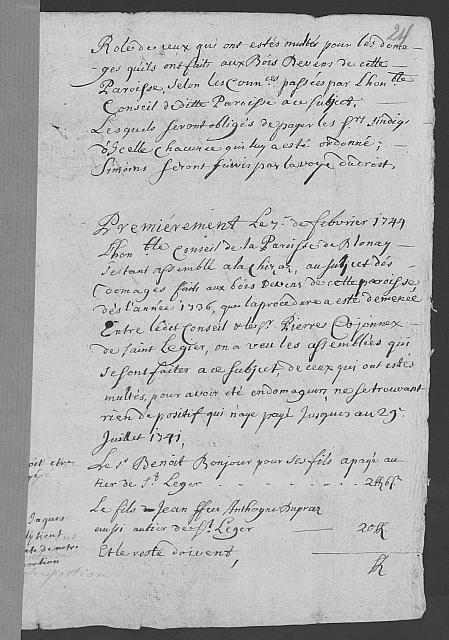 24
Role de ceux qui ont estés multés pour les doma-
ges quils ont faits aux Bois Devens de cette
Paroisse, selon les Conn.ces passées par Lhon.ble
Conseil de ditte Paroisse a ce subject.
Lesquels seront obligés de payer les Srs. sindiqs
d'Icelle chacun ce qui luy a esté ordonné;
Simoins seront suivis par la voye du droit.
Premiérement Le 7.e de febvrier 1744
Lhon.ble Conseil de la Paroisse de Blonay
sestant assemblé a la Chiésaz, au subject des
Domages faits aux bois Devens de cette paroisse
dés l'année 1736, que la procédure a esté demenée
Entre ledit Conseil & le Sr. Pierre Cojonnex
de Saint Legier, on a veu les assemblées qui
se sont faites a ce Subject, de ceux qui ont estés
multés, pour avoir été endomageurs, ne se trouvant
rien de positif qui n'aye payé Jusques au 29.e
Juillet 1741,
Le Sr. Benoit Bonjour pour ses fils a payé au
tier de St. Leger . . . . . . . .
Le fils de Jean ffeu Anthoyne Dupraz
aussi autier de St. Leger 20
Et le reste doivent,
Jaques
tient
de notre
portion
portion